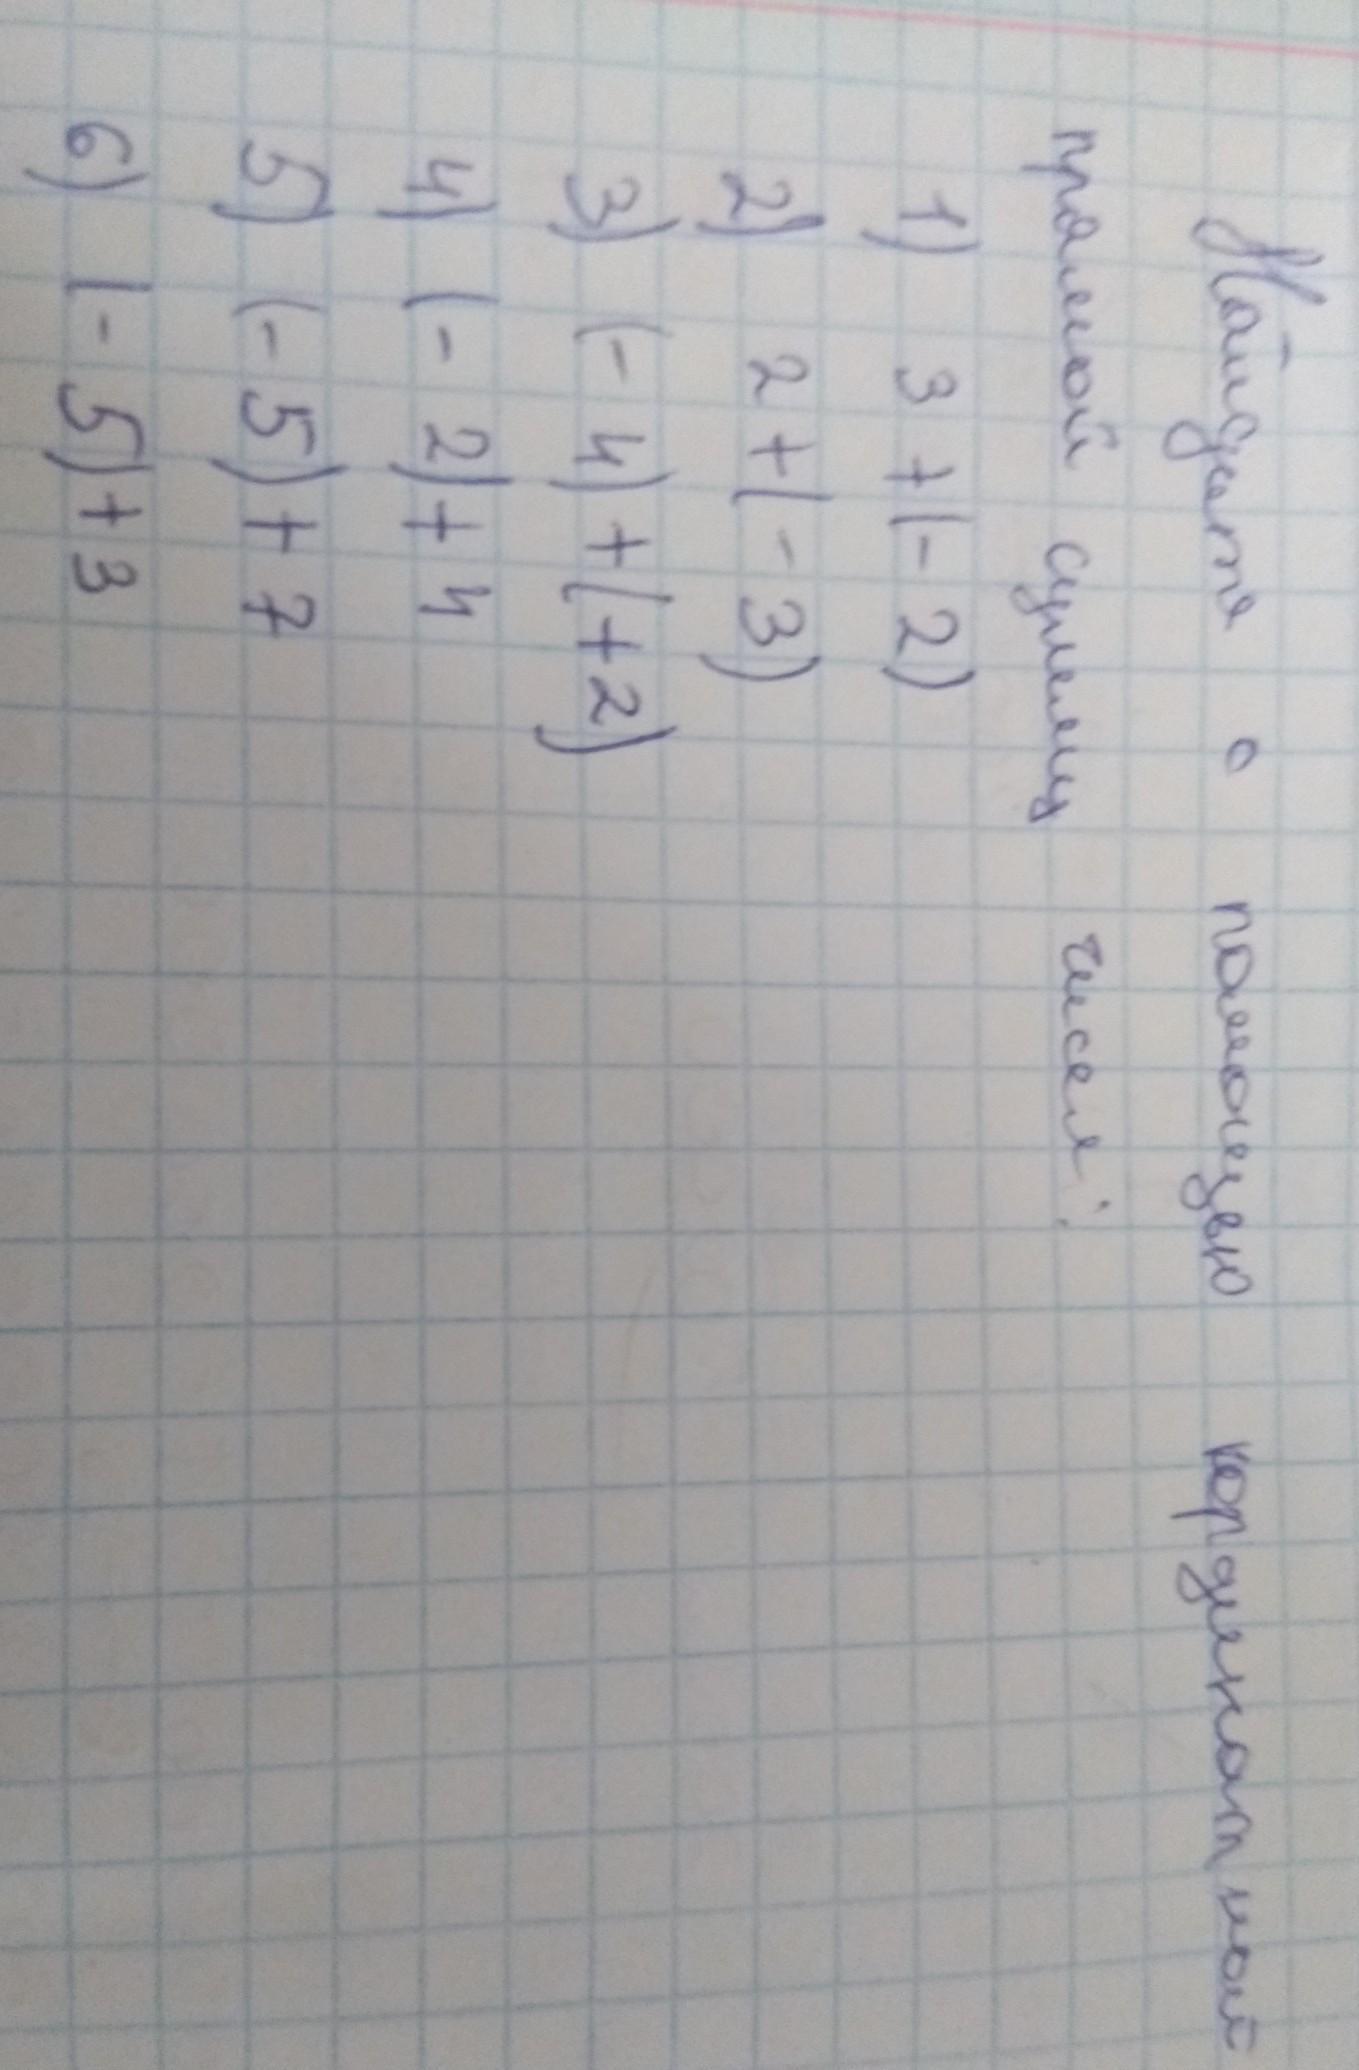 Найдите с помощью кординатной
прямой сумму чисел:
1) 3 + (- 2)
2) 2 + (- 3)
3) (- 4) + (+ 2)
4) (- 2) + 4
5) (- 5) + 7
6) (- 5) + 3